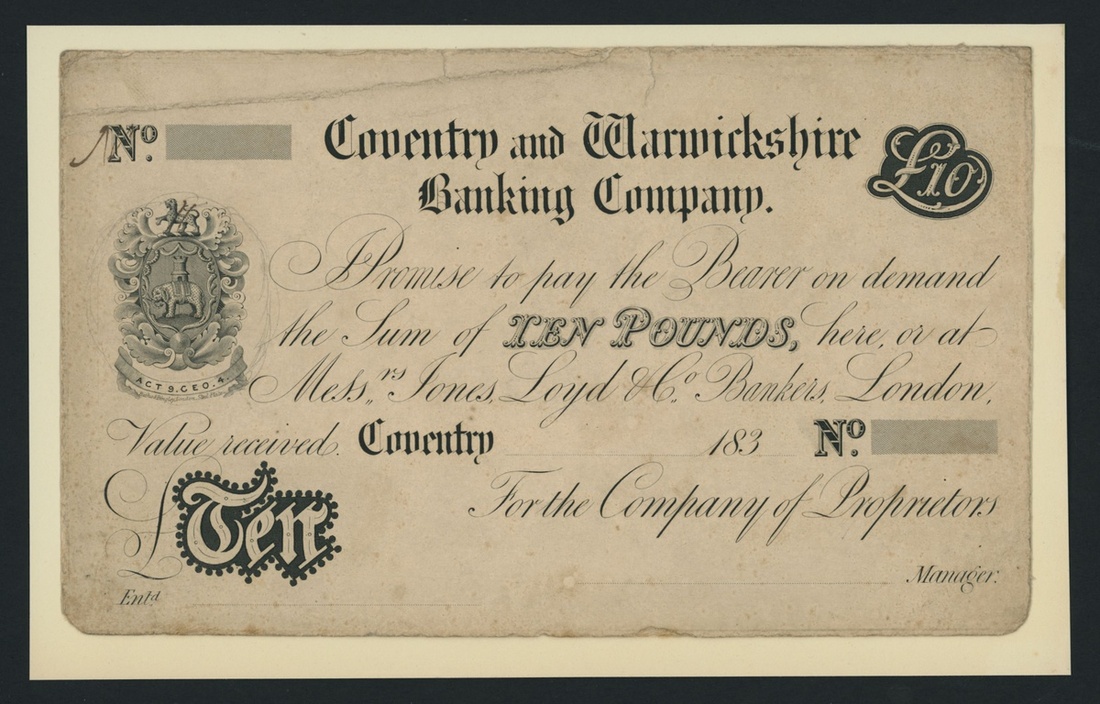 No.
Coventry and Warwickshire
Banking Company.
£10
I Promise to pay the Bearer on demand
the Sum of TEN POUNDS, here, or at
Mess,,rs Jones, Loyd & Co. Bankers, London,
ACT 9. GEO. 4.
Value received. Coventry 183 No.
£ Ten
For the Company of Proprietors
Manager.
Entd